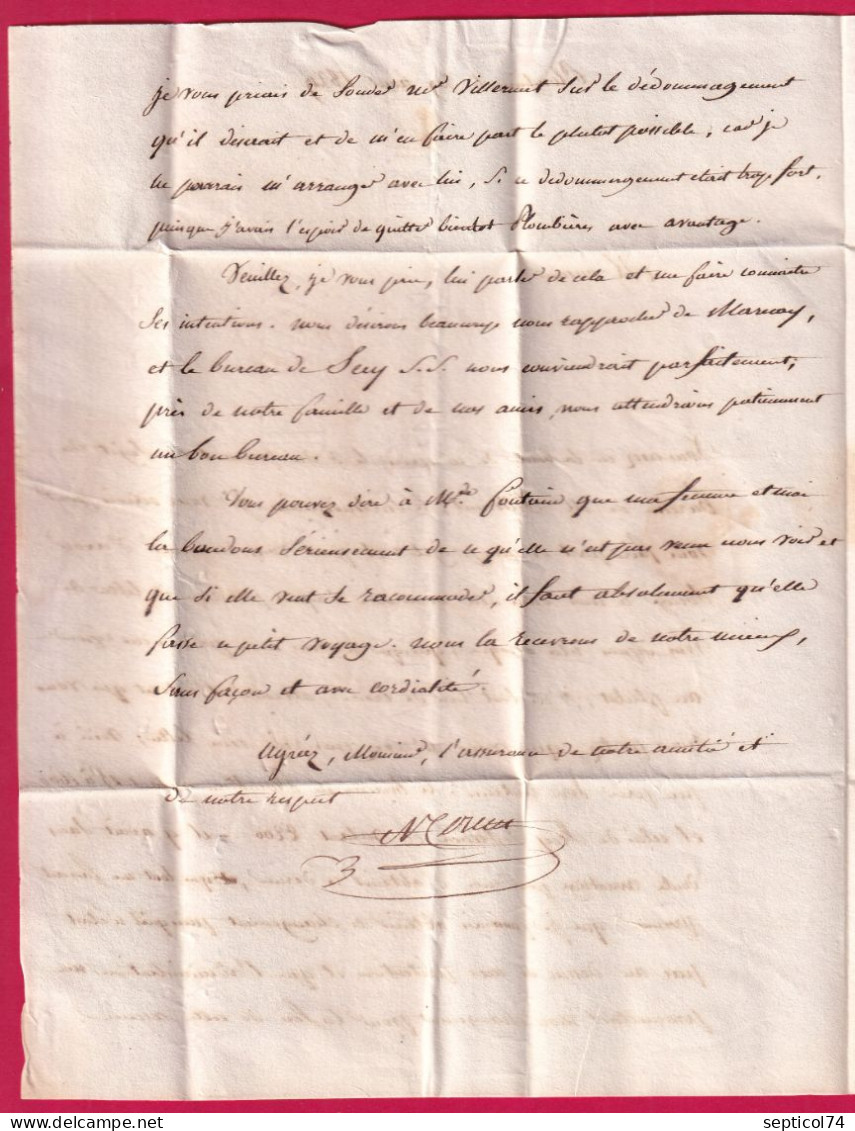 je vous priais de Sonder mr Villermet Sur le dédommagement
qu'il diserait et de m'en faire part le plutot possible, car je
ne pourais m'arranger avec lui, Si ce dedommergement était trop fort,
puisque j'avais l'espoir de quitter bientot Plombières avec avantage.
Veuillez, je vous prie, lui parler de cela et me faire connaitre
Ses intentions. nous désirons beaucoup nous rapprocher de Marnay,
et le bureau de Scey S.S. nous conviendrait parfaitement;
près de notre famille et de nos amis, nous attendrions patiemment
un bon bureau.
Vous pouvez dire à Mde. fontaine que ma femme et moi
la boudons Sérieusement de ce qu'elle n'est pas venue nous voir et
que Si elle veut Se racommoder, il faut absolument qu'elle
fasse ce petit voyage. nous la recevrons de notre mieux,
Sans façon et avec cordialité.
Agréez, Monsieur, l'assurance de notre amitié et
de notre respect
septicol74